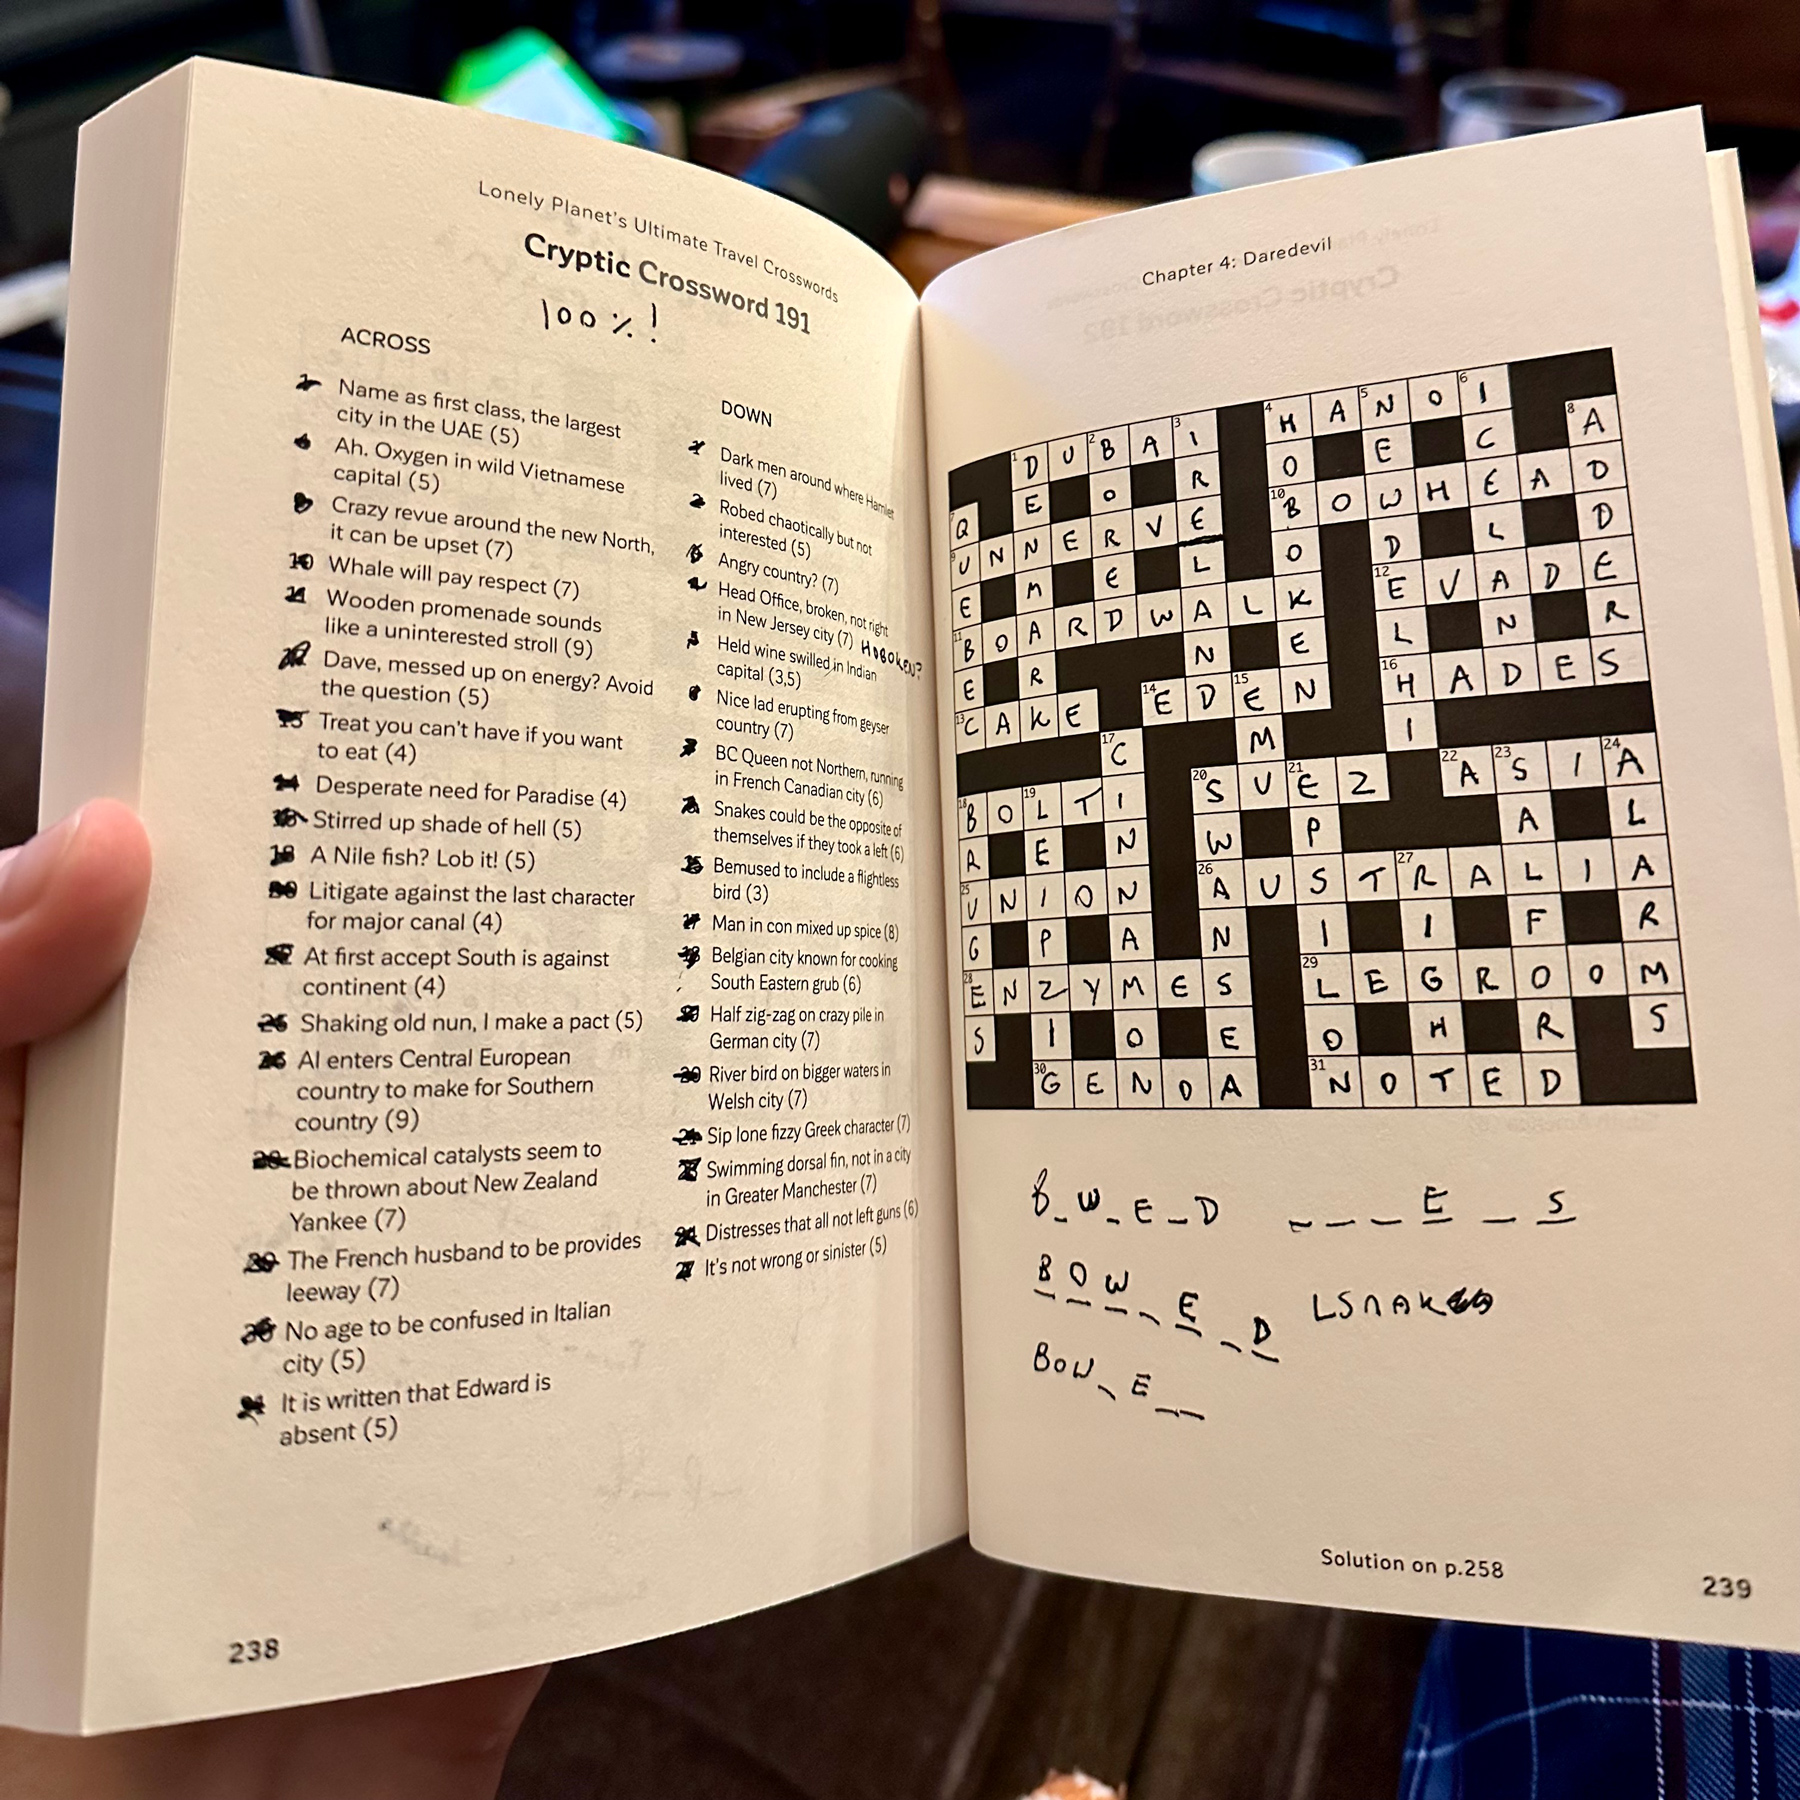 Lonely Planet's Ultimate Travel Crosswords
Cryptic Crossword 191
100%!
ACROSS
Name as first class, the largest
city in the UAE (5)
Ah, Oxygen in wild Vietnamese
capital (5)
Crazy revue around the new North,
it can be upset (7)
10 Whale will pay respect (7)
11 Wooden promenade sounds
like a uninterested stroll (9)
Dave, messed up on energy? Avoid
the question (5)
Treat you can't have if you want
to eat (4)
Desperate need for Paradise (4)
Stirred up shade of hell (5)
18 A Nile fish? Lob it! (5)
Litigate against the last character
for major canal (4)
At first accept South is against
continent (4)
Shaking old nun, I make a pact (5)
26 Al enters Central European
country to make for Southern
country (9)
Biochemical catalysts seem to
be thrown about New Zealand
Yankee (7)
The French husband to be provides
leeway (7)
No age to be confused in Italian
city (5)
It is written that Edward is
absent (5)
DOWN
Dark men around where Hamlet
lived (7)
2 Robed chaotically but not
interested (5)
Angry country? (7)
Head Office, broken, not right
in New Jersey city (7) HOBOKEN?
5 Held wine swilled in Indian
capital (3,5)
Nice lad erupting from geyser
country (7)
7 BC Queen not Northern, running
in French Canadian city (6)
Snakes could be the opposite of
themselves if they took a left (6)
15 Bemused to include a flightless
bird (3)
17 Man in con mixed up spice (8)
Belgian city known for cooking
South Eastern grub (6)
Half zig-zag on crazy pile in
German city (7)
20 River bird on bigger waters in
Welsh city (7)
21 Sip lone fizzy Greek character (7)
Swimming dorsal fin, not in a city
in Greater Manchester (7)
24 Distresses that all not left guns (6)
27 It's not wrong or sinister (5)
238
Chapter 4: Daredevil
4 H A 5 N O 6 I
1 D U 2 B A 3 I O E C 8 A
E O R 10 B O W H E A D
7 Q
9 U N N E R V E O D L D
E M E L 12 E V A D E
11 B O A R D W A L K L N R
E R N E 16 H A D E S
13 C A K E 14 E D 15 E N I
17 C M
18 B O 19 L T I 20 S U 21 E Z 22 A 23 S I 24 A
R E N W P A L
25 U N I O N 26 A U S T 27 R A L I A
G P A N I I F R
28 E N Z Y M E S 29 L E G R O O M
S I O E O H R S
30 G E N O A 31 N O T E D
B_W_E_D _ _ _ E _ S
B O W _ E _ D LSNAK
BOW_E_ _
Solution on p.258
239